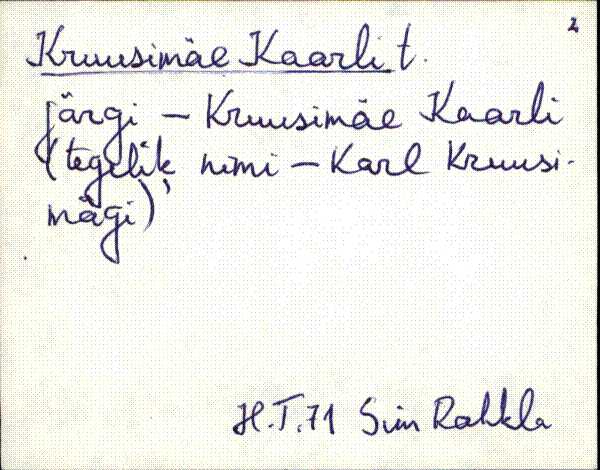 2
Kruusimäe Kaarli t.
järgi – Kruusimäe Kaarli
(tegelik nimi – Karl Kruusi-
mägi)'
H.T.71 Siim Rahkla